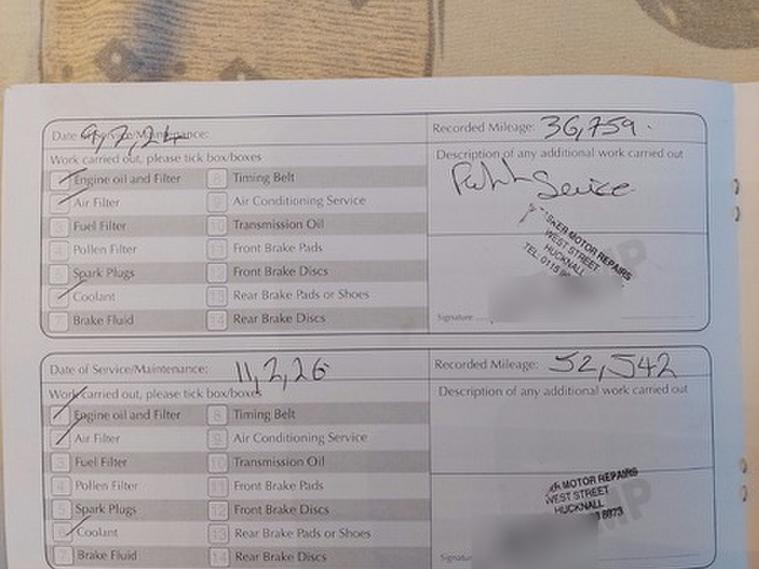 Date of Service/Maintenance: 9,7,24
Recorded Mileage: 36,759.
Work carried out, please tick box/boxes
Description of any additional work carried out
Engine oil and Filter
8 Timing Belt
Service
Air Filter
9 Air Conditioning Service
3 Fuel Filter
10 Transmission Oil
4 Pollen Filter
11 Front Brake Pads
5 Spark Plugs
12 Front Brake Discs
Coolant
13 Rear Brake Pads or Shoes
7 Brake Fluid
14 Rear Brake Discs
SKER MOTOR REPAIRS
WEST STREET
HUCKNALL
TEL 0115
Signature
Date of Service/Maintenance: 11,2,26
Recorded Mileage: 52,542
Work carried out, please tick box/boxes
Description of any additional work carried out
Engine oil and Filter
8 Timing Belt
Air Filter
9 Air Conditioning Service
3 Fuel Filter
10 Transmission Oil
4 Pollen Filter
11 Front Brake Pads
5 Spark Plugs
12 Front Brake Discs
6 Coolant
13 Rear Brake Pads or Shoes
7 Brake Fluid
14 Rear Brake Discs
MOTOR REPAIRS
WEST STREET
HUCKNALL
8873
Signatu